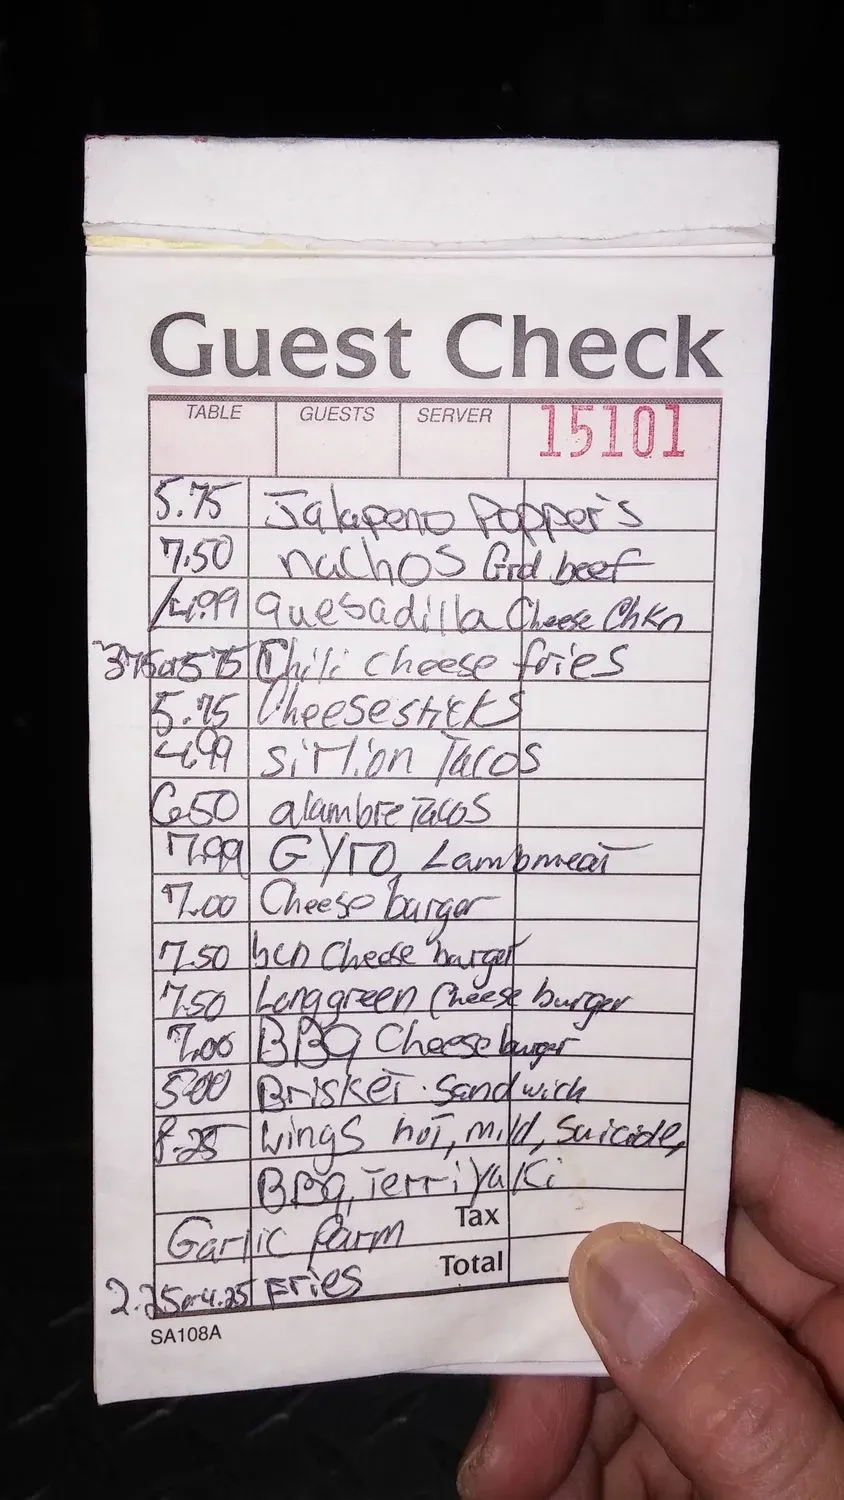 Guest Check
TABLE GUESTS SERVER 15101
5.75 Jalapeno Popper's
7.50 nachos Grd beef
4.99 quesadilla Cheese Chkn
3.75 or 5.75 Chili cheese fries
5.75 Cheesesticks
4.99 sirlion Tacos
6.50 alambre Tacos
7.99 GYro, Lambmeat
7.00 Cheese burger
7.50 bcn Cheese burger
7.50 Longgreen Cheese burger
7.00 BBQ Cheese burger
5.00 Brisket Sandwich
8.25 wings hot, mild, Suicide,
BBQ, Terriyaki
Garlic parm Tax
2.25 or 4.25 Fries Total
SA108A